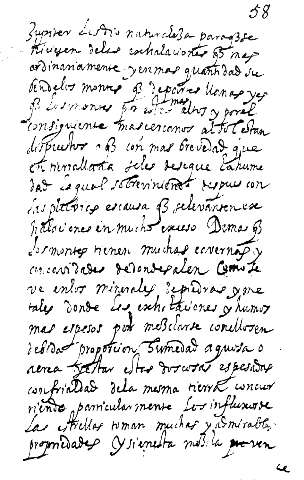 58
Jupiter les dio naturaleza para q̃ se
hiciesen de las exhalaciones q̃ mas
ordinariamente y en mas quantidad su
ben de los montes q̃ de partes llanas y es
q̃ los montes mas altos y por el
consiguiente mas cercanos al sol estan
dispuestos a q̃ con mas brevedad que
en tierra llana se les deseque la hume
dad la qual sobreviniendo despues con
las pluvias es causa q̃ se levanten ex
halaciones en mucho exceso Demas q̃
los montes tienen muchas cavernas y
concavidades de donde salen Como se
ve en los minerales de piedras y me
tales donde las exhalaciones y humos
mas espesos por mezclarse con ellos en
debida proporcion humedad aquosa o
aerea y estar estas dos cosas espesadas
con frialdad de la mesma tierra concur
riendo particularmente los influxos de
las estrellas toman muchas y admirables
propriedades Y si en esta mezcla preven
ce